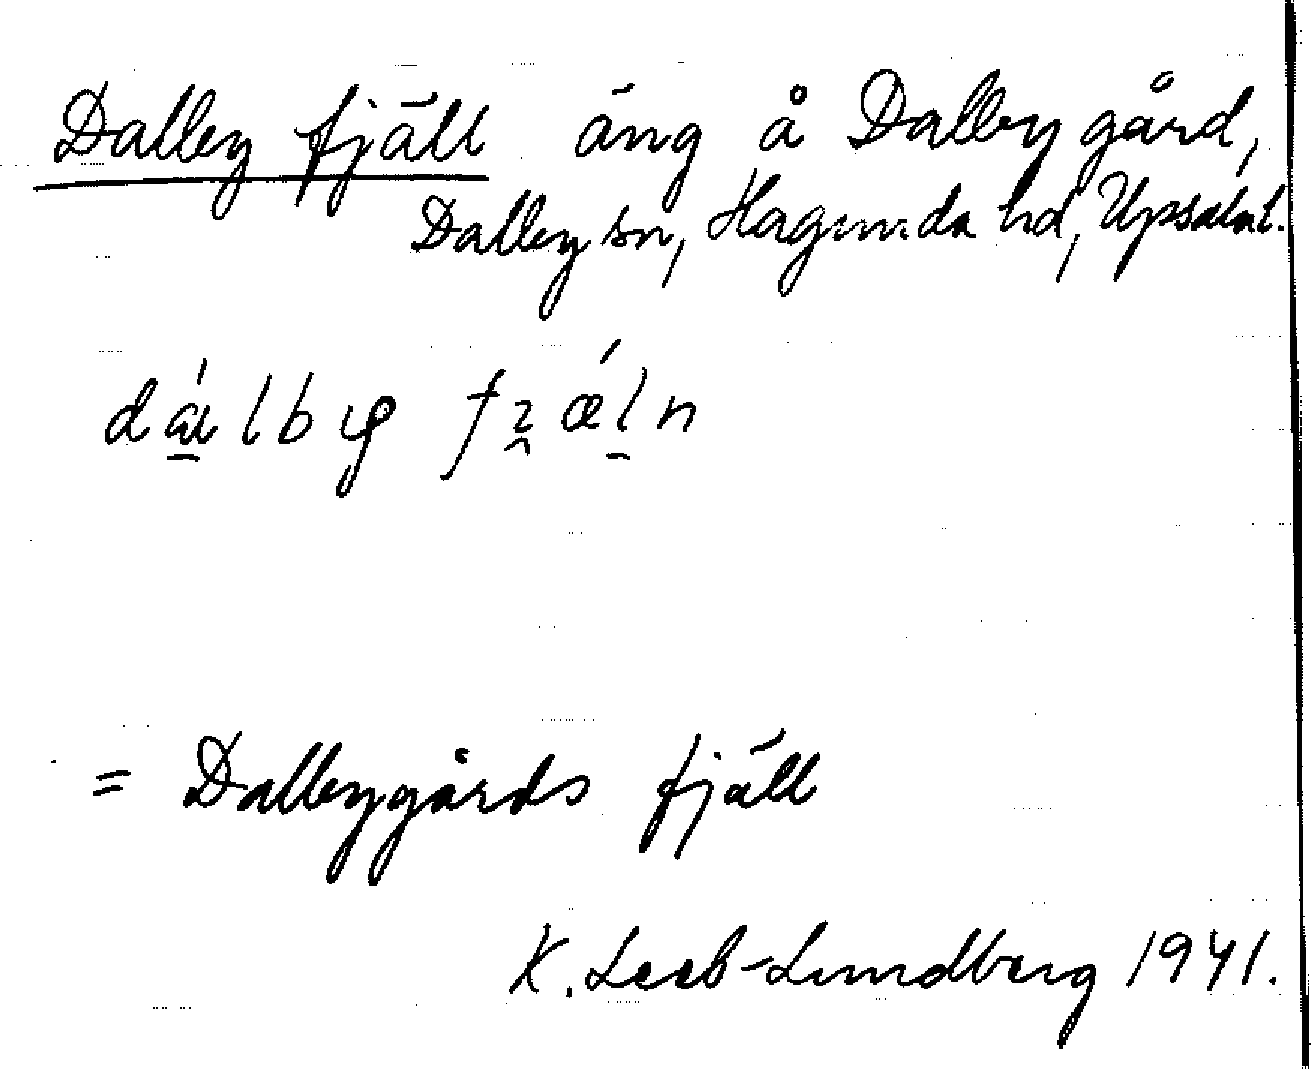 Dalby fjäll äng å Dalby gård,
Dalby sn, Hagunda hd, Upsala l.
= Dalbygårds fjäll
K. Leeb-Lundberg 1941.